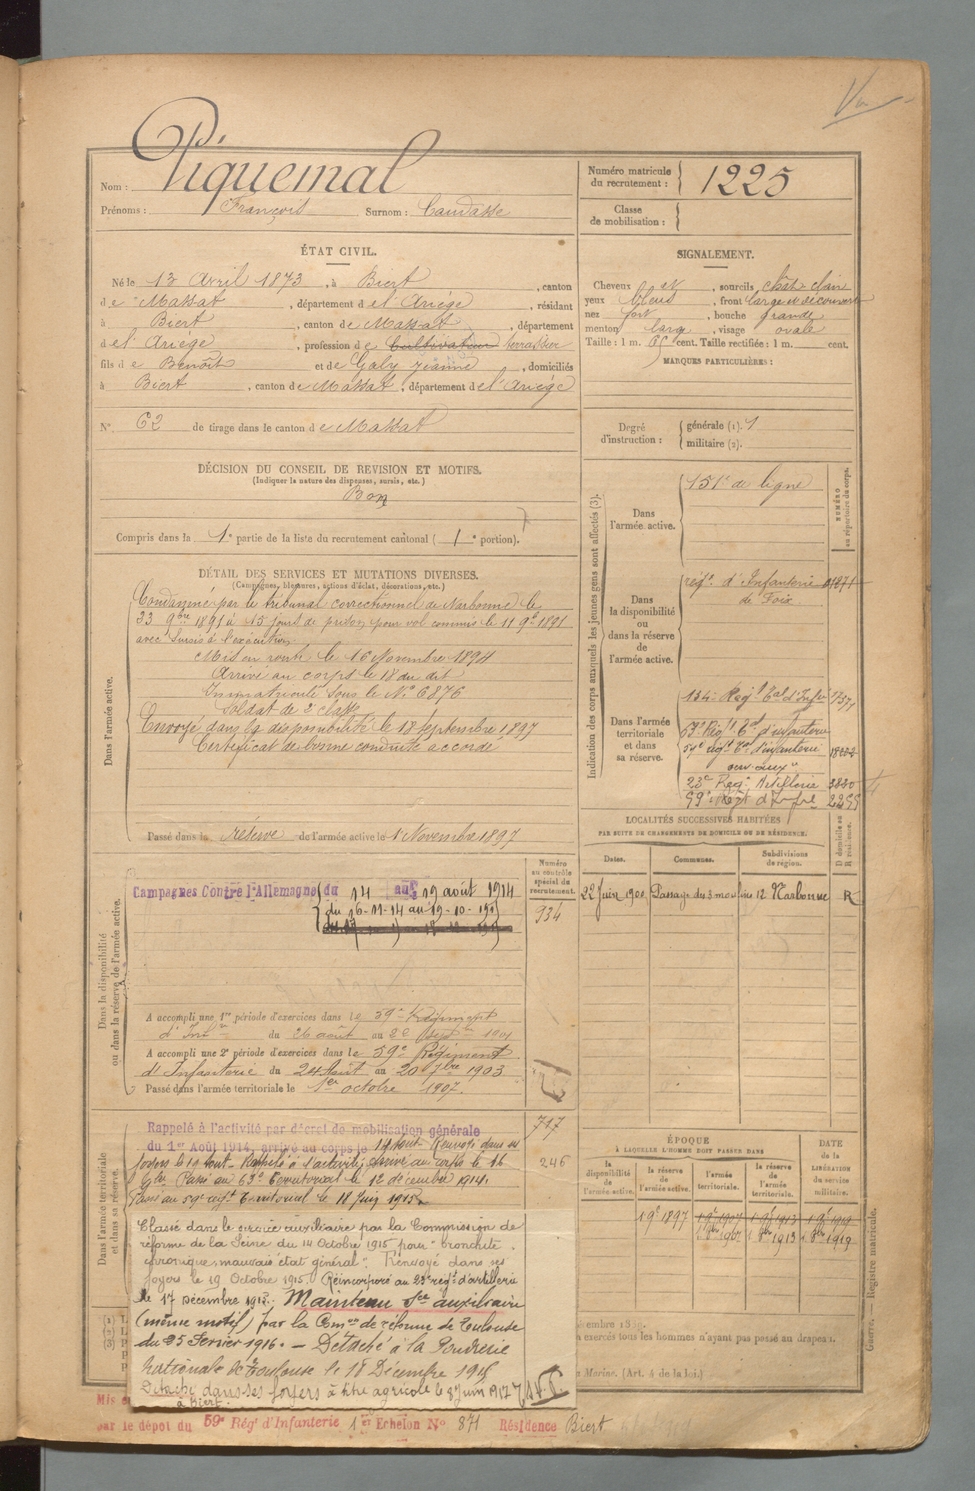 Nom : Piquemal
Prénoms : François Surnom : Candasse
Numéro matricule du recrutement : 1225
Classe de mobilisation :
ÉTAT CIVIL.
Né le 13 Avril 1873, à Biert, canton
de Massat, département de l'Ariège, résidant
à Biert, canton de Massat, département
de l'Ariège, profession de Cultivateur terrassier
fils de Benoît et de Galy Jeanne, domiciliés
à Biert, canton de Massat, département de l'Ariège
N° 62 de tirage dans le canton de Massat
SIGNALEMENT.
Cheveux et, sourcils chât clair
yeux bleus, front large et découvert
nez fort, bouche grande
menton large, visage ovale
Taille : 1 m. 65 cent. Taille rectifiée : 1 m. cent.
MARQUES PARTICULIÈRES :
Degré d'instruction : générale (1). 1
militaire (2).
DÉCISION DU CONSEIL DE REVISION ET MOTIFS.
(Indiquer la nature des dispenses, sursis, etc.)
Bon
Compris dans la 1e partie de la liste du recrutement cantonal ( 1e portion).
DÉTAIL DES SERVICES ET MUTATIONS DIVERSES.
(Campagnes, blessures, actions d'éclat, décorations, etc.)
Dans l'armée active.
Condamné par le tribunal correctionnel de Narbonne le
23 9bre 1891 à 15 jours de prison pour vol commis le 11 9bre 1891
avec sursis à l'exécution.
Mis en route le 16 Novembre 1894
Arrivé au corps le 18 du dit
Immatriculé sous le N° 6876
Soldat de 2e classe
Envoyé dans la disponibilité le 18 Septembre 1897
Certificat de bonne conduite accordé
Passé dans la réserve de l'armée active le 1 Novembre 1897
Indication des corps auxquels les jeunes gens sont affectés (3).
NUMÉRO au répertoire du corps.
Dans l'armée active.
151e de ligne
Dans la disponibilité ou dans la réserve de l'armée active.
régt. d'Infanterie
de Foix
Dans l'armée territoriale et dans sa réserve.
134e Regt Tal d'Infie
63e Régt Tal d'infanterie
59e regt Tal d'infanterie
23e Regt Artillerie 3880
59e Régt d'Infie
LOCALITÉS SUCCESSIVES HABITÉES
PAR SUITE DE CHANGEMENTS DE DOMICILE OU DE RÉSIDENCE.
Dates. Communes. Subdivisions de région. D domicile ou R résidence.
22 Juin 1900 Passage des 3 moulins 12 Narbonne R
Dans la disponibilité ou dans la réserve de l'armée active.
Numéro au contrôle spécial du recrutement.
Campagnes Contre l'Allemagne du 14 au 19 août 1914
du 16-11-14 au 19-10-15
934
A accompli une 1re période d'exercices dans le 59e Régiment
d'Infie du 26 août au 22 Septbre 1901
A accompli une 2e période d'exercices dans le 59e Régiment
d'Infanterie du 24 Août au 20 7bre 1903
Passé dans l'armée territoriale le 1er octobre 1907.
Dans l'armée territoriale et dans sa réserve.
717
246
Rappelé à l'activité par décret de mobilisation générale
du 1er Août 1914, arrivé au corps le 14 aout Renvoyé dans ses
foyers le 19 aout. Rappelé à l'activité, Arrivé au corps le 16
9bre. Passé au 63e Territorial le 12 décembre 1914.
Passé au 59e regt Territorial le 18 Juin 1915.
Classé dans le service auxiliaire par la Commission de
réforme de la Seine du 14 Octobre 1915 pour "bronchite
chronique, mauvais état général". Renvoyé dans ses
foyers le 19 Octobre 1915. Réincorporé au 23e regt d'artillerie
le 17 Décembre 1915. Maintenu Sce auxiliaire
(même motif) par la Comon de réforme de Toulouse
du 25 Fevrier 1916. — Détaché à la Poudrerie
Nationale de Toulouse le 18 Décembre 1915
Détaché dans ses foyers à titre agricole le 8 Juin 1917
à Biert.
ÉPOQUE
À LAQUELLE L'HOMME DOIT PASSER DANS
DATE de la LIBÉRATION du service militaire.
la disponibilité de l'armée active. la réserve de l'armée active. l'armée territoriale. la réserve de l'armée territoriale.
1 9e 1897 1 9e 1907 1 9e 1913 1 9e 1919
1 8bre 1907 1 8bre 1913 1 8bre 1919
exercés tous les hommes n'ayant pas passé au drapeau.
Marine. (Art. 4 de la loi.)
Guerre. — Registre matricule.
par le dépot du 59e Régt d'Infanterie 1er Echelon No 871 Résidence Biert